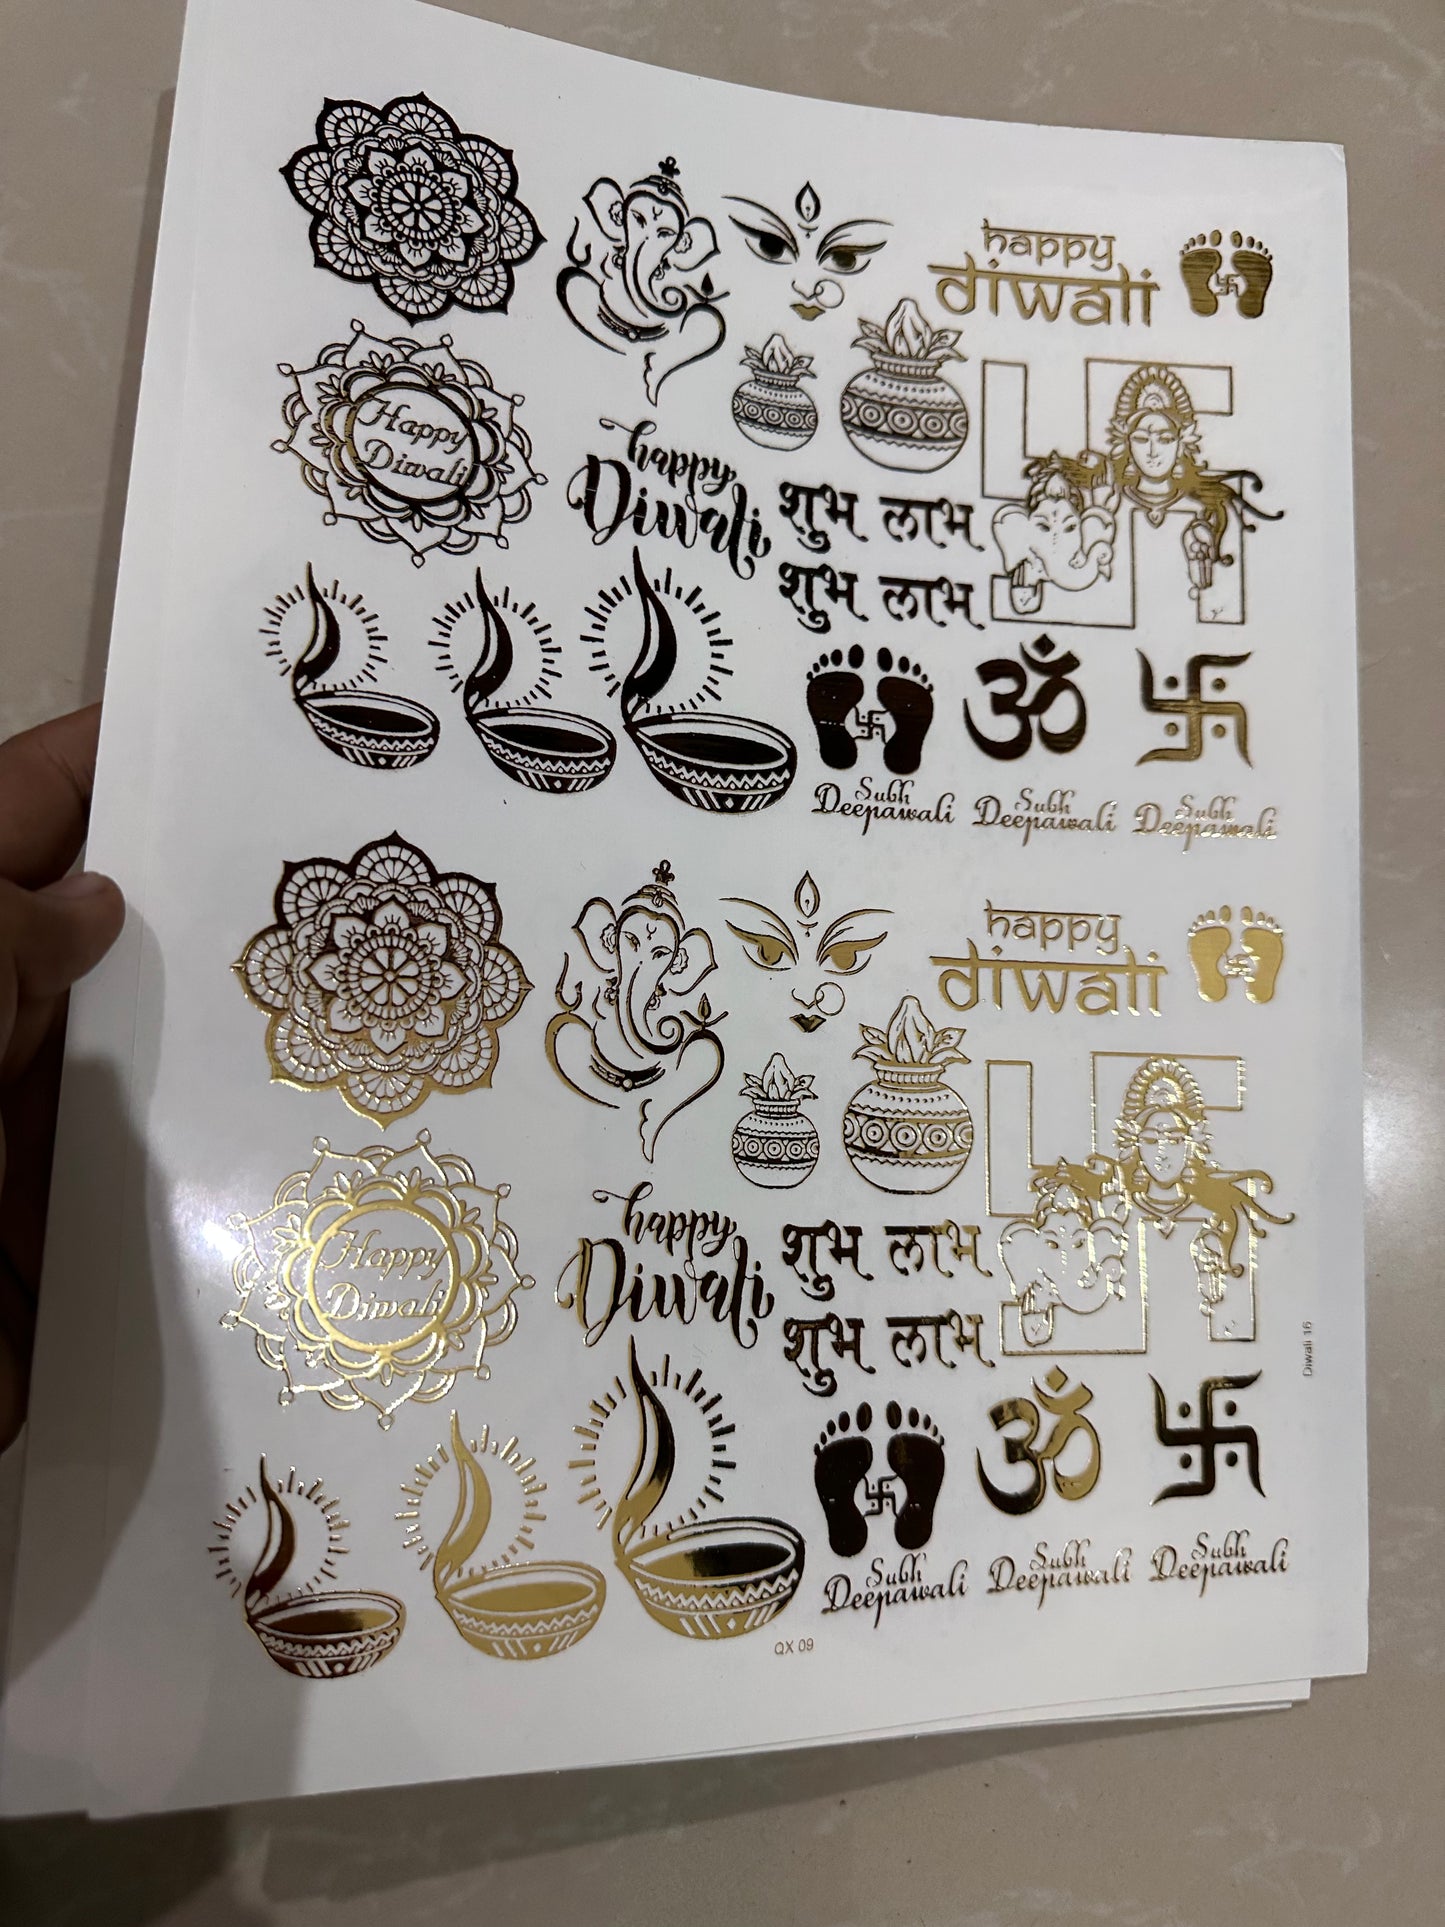 happy
diwali
Happy
Diwali
happy
Diwali
शुभ लाभ
शुभ लाभ
ॐ
Subh
Deepawali
Subh
Deepawali
Subh
Deepawali
happy
diwali
Happy
Diwali
happy
Diwali
शुभ लाभ
शुभ लाभ
ॐ
Subh
Deepawali
Subh
Deepawali
Subh
Deepawali
QX 09
Diwali 16